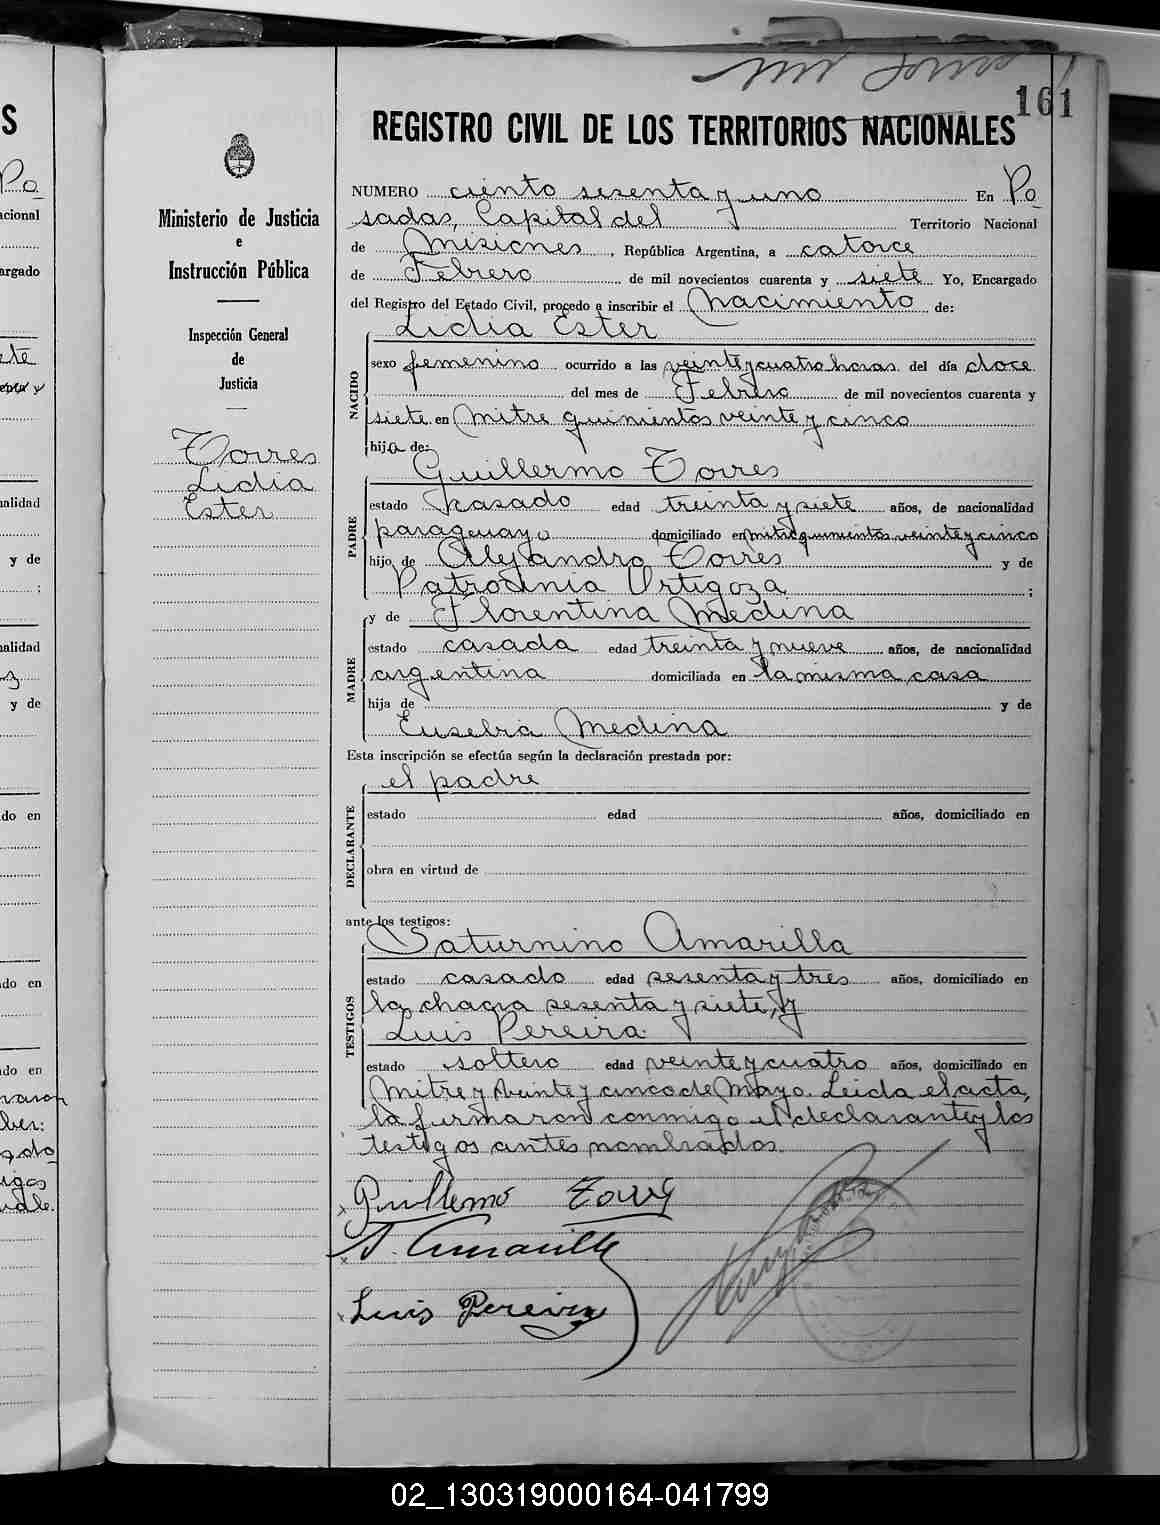 161
REGISTRO CIVIL DE LOS TERRITORIOS NACIONALES
Ministerio de Justicia
e
Instrucción Pública
Inspección General
de
Justicia
Torres
Lidia
Ester
NUMERO ciento sesenta y uno En Po
sadas, Capital del Territorio Nacional
de Misiones, República Argentina, a catorce
de Febrero de mil novecientos cuarenta y siete Yo, Encargado
del Registro del Estado Civil, procedo a inscribir el Nacimiento de:
Lidia Ester
NACIDO
sexo femenino ocurrido a las veinte y cuatro horas del día doce
del mes de Febrero de mil novecientos cuarenta y
siete en Mitre quinientos veinte y cinco
hija de:
Guillermo Torres
PADRE
estado casado edad treinta y siete años, de nacionalidad
paraguayo domiciliado en mitre quinientos veinte y cinco
hijo de Alejandro Torres y de
Patrocinia Ortigoza ;
y de Florentina Medina
MADRE
estado casada edad treinta y nueve años, de nacionalidad
argentina domiciliada en la misma casa
hija de y de
Eusebia Medina
Esta inscripción se efectúa según la declaración prestada por:
el padre
DECLARANTE
estado edad años, domiciliado en
obra en virtud de
ante los testigos:
Saturnino Amarilla
TESTIGOS
estado casado edad sesenta y tres años, domiciliado en
la chacra sesenta y siete, y
Luis Pereira.
estado soltero edad veinte y cuatro años, domiciliado en
Mitre y Veinte y cinco de Mayo. Leida el acta,
la firmaron conmigo el declarante y los
testigos antes nombrados.
Guillermo Torres
S. Amarilla
Luis Pereira
02_130319000164-041799